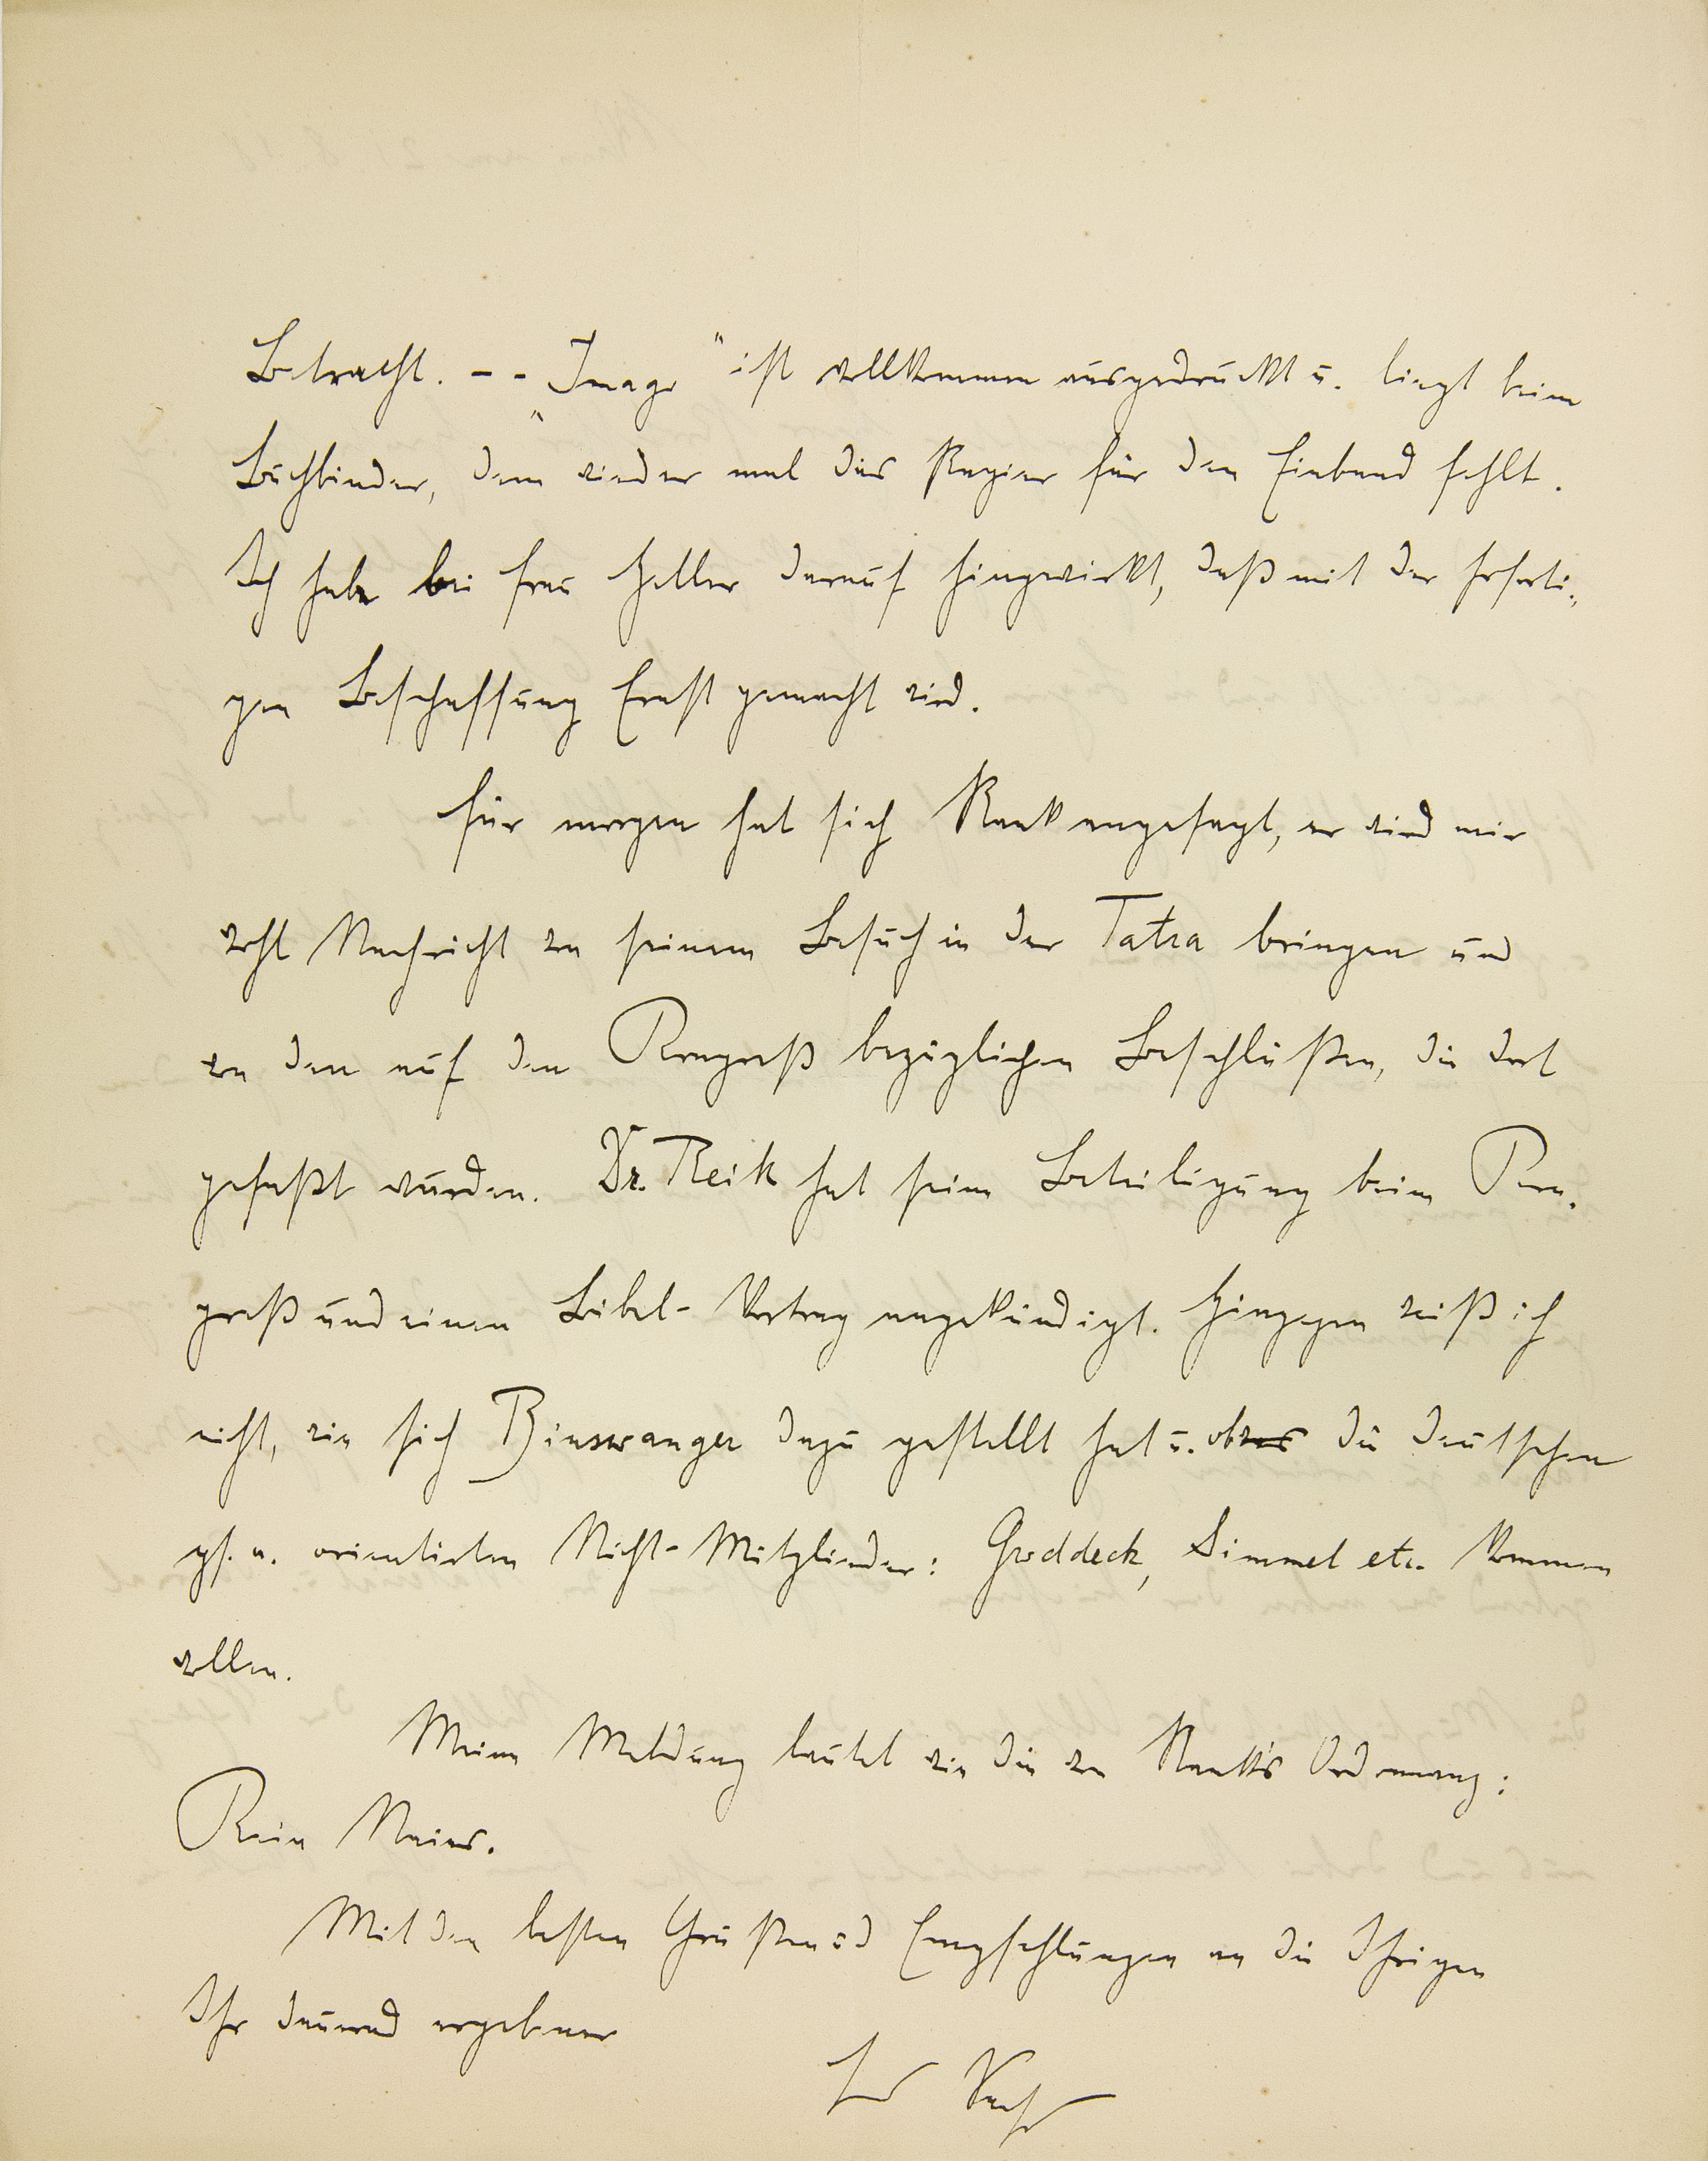 Betracht. – – „Imago“ ist vollkommen ausgedruckt u. liegt beim
Buchbinder, dem wieder mal das Papier für den Einband fehlt.
Ich habe bei Frau Heller darauf hingewirkt, daß mit der soforti-
gen Beschaffung Ernst gemacht wird.
Für morgen hat sich Rank angesagt, er wird mir
wohl Nachricht von seinem Besuch in der Tatra bringen und
von den auf den Kongreß bezüglichen Beschlüßen, die dort
gefaßt wurden. Dr. Reik hat seine Beteiligung beim Kon-
greß und einen Bibel-Vortrag angekündigt. Hingegen weiß ich
nicht, wie sich Binswanger dazu gestellt hat u. ob die Deutschen
ps. a. orientierten Nicht-Mitglieder: Groddeck, Simmel etc. kommen
wollen.
Meine Meldung lautet wie die von Rank's Ordonnanz:
Kein Neues.
Mit den besten Grüßen u d Empfehlungen an die Ihrigen
Ihr dauernd ergebener
Sachs